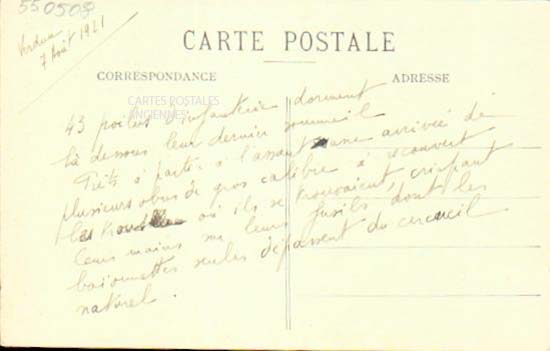 550508
Verdun
7 Août 1921
CARTE POSTALE
CORRESPONDANCE
ADRESSE
CARTES POSTALES
ANCIENNES
43 poilus d'infanterie dorment
là dessous leur dernier sommeil
Prêts à partir à l'assaut une arrivée de
plusieurs obus de gros calibre a recouvert
où ils se trouvaient, crispant
leurs mains sur leurs fusils, dont les
baïonnettes seules dépassent du cercueil
naturel.